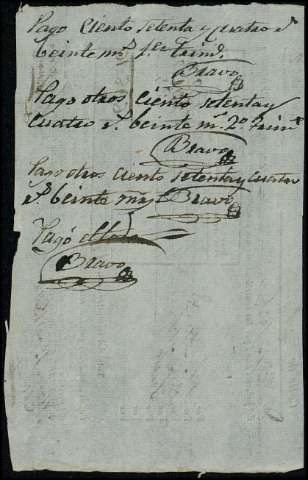 Pago ciento setenta y quatro r.^s
beinte m.^s 1.^er trim.^e
Bravo
Pago otros ciento setenta y
cuatro r.^s beinte m.^s 2.^o trim.^e
Bravo
Pago otros ciento setenta y cuatro
r.^s beinte m.^s
Bravo
Pagó el
Bravo